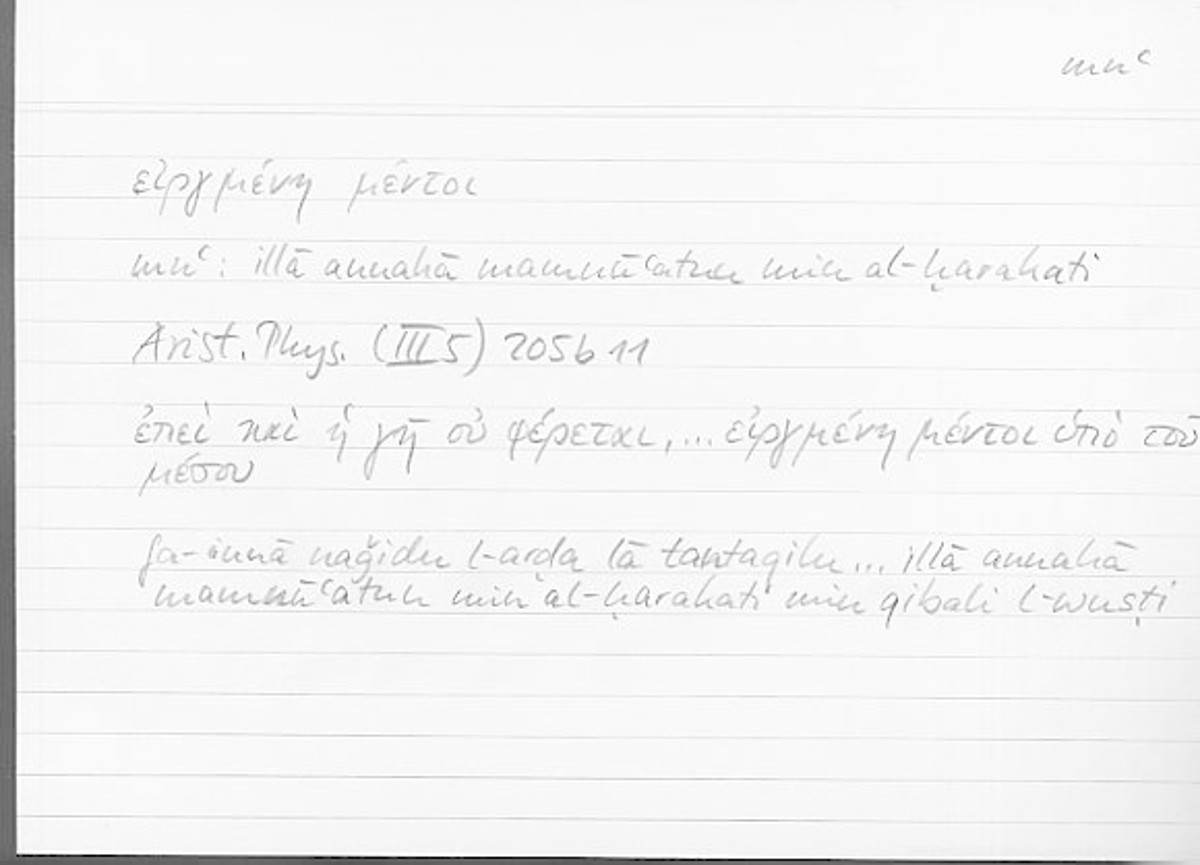 mnʿ
εἰργμένη μέντοι
mnʿ: illā annahā mamnūʿatun min al-ḥarakati
Arist. Phys. (III 5) 205b 11
ἐπεὶ καὶ ἡ γῆ οὐ φέρεται, ... εἰργμένη μέντοι ὑπὸ τοῦ
μέσου
fa-innā naǧidu l-arḍa lā tantaqilu... illā annahā
mamnūʿatun min al-ḥarakati min qibali l-wusṭi